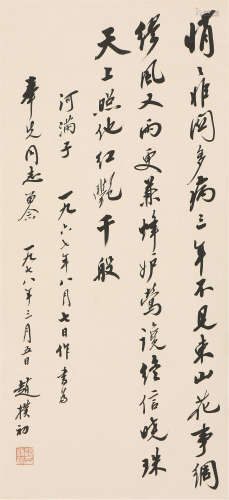 悄〻非関多病三年不見東山花事綢
繆風又雨更兼蜂妒鶯讒終信曉珠
天上照他紅艷千般
河滿子 一九六七年八月七日作 書為
同志留念 一九七八年三月五日 趙樸初